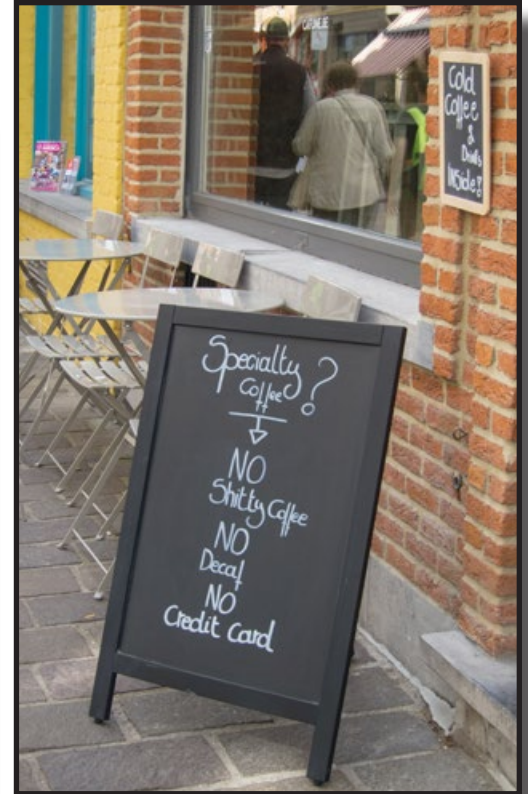 Cold
Coffee
&
Drinks
Inside!
Specialty ?
Coffee
NO
Shitty Coffee
NO
Decaf
NO
Credit Card